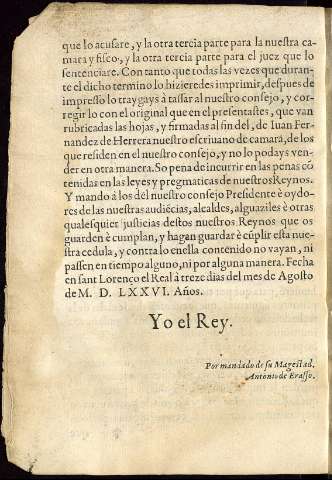 que lo acusare, y la otra tercia parte para la nuestra ca-
mara y fisco, y la otra tercia parte del juez que lo
sentenciare. Con tanto que todas las vezes que duran-
te el dicho termino lo hizieredes imprimir, despues de
impresso lo traygays a tassar al nuestro consejo, y cor-
regir lo con el original que en el presentastes, que van
rubricadas las hojas, y firmadas al fin del, de Iuan Fer-
nandez de Herrera nuestro escriuano de camara, de los
que residen en el nuestro consejo, y no lo podays ven-
der en otra manera. So pena de incurrir en las penas cõ
tenidas en las leyes y pregmaticas de nuestros Reynos.
Y mando à los del nuestro consejo Presidente è oydo-
res de las nuestras audiẽcias, alcaldes, alguaziles è otras
qualesquier justicias destos nuestros Reynos que os
guarden è cumplan, y hagan guardar è cũplir esta nue-
stra cedula, y contra lo en ella contenido no vayan, ni
passen en tiempo alguno, ni por alguna manera. Fecha
en sant Lorenço el Real à treze dias del mes de Agosto
de M. D. LXXVI. Años.
Yo el Rey.
Por mandado de su Magestad.
Antonio de Erasso.